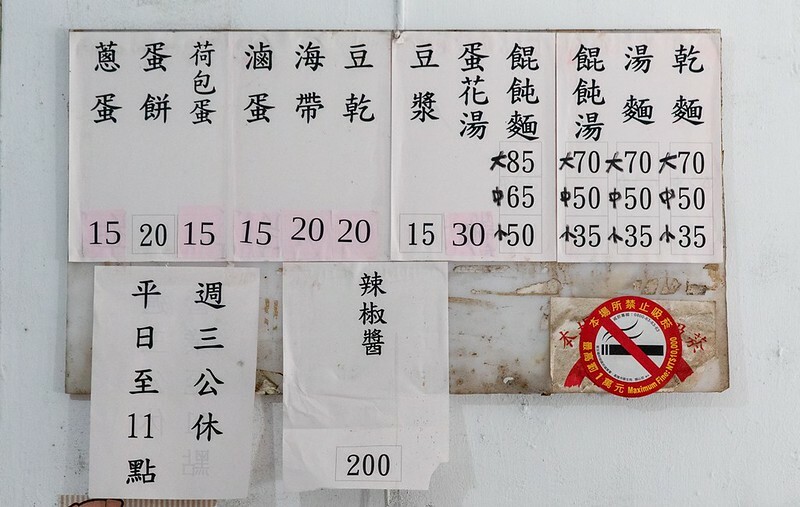 乾麵 大70 中50 小35
湯麵 大70 中50 小35
餛飩湯 大70 中50 小35
餛飩麵 大85 中65 小50
蛋花湯 30
豆漿 15
豆乾 20
海帶 20
滷蛋 15
荷包蛋 15
蛋餅 20
蔥蛋 15
週三公休
平日至11點
辣椒醬
200
本場所禁止吸菸
最高罰1萬元 Maximum Fine: NT$10,000